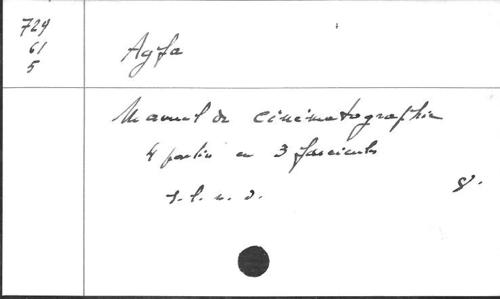 729
61
5
Agfa
Manuel de cinématographie
4 parties en 3 fascicules
s.l.n.d.
8°.